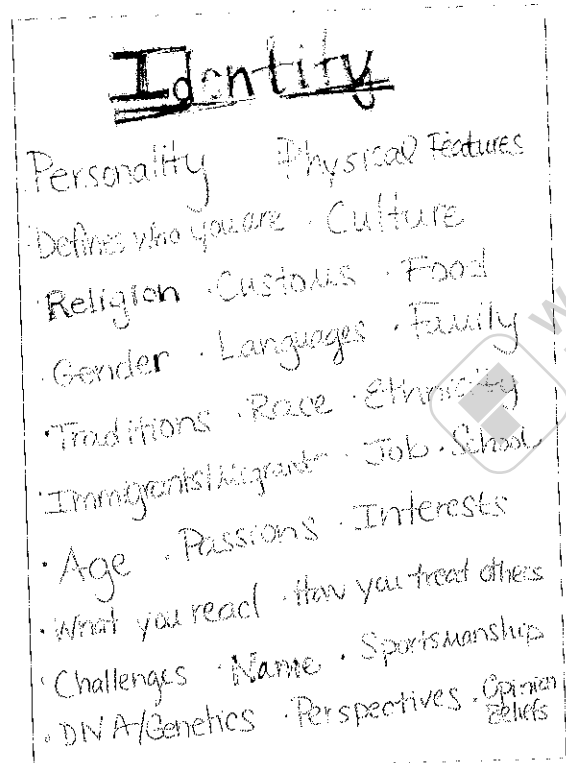 Identity
Personality Physical Features
·Defines who you are · Culture
·Religion ·Customs · Food
·Gender · Languages · Family
·Traditions ·Race ·Ethnicity
·Immigrants/Migrant · Job ·School
·Age ·Passions ·Interests
·What you read ·How you treat others
·Challenges ·Name · Sportsmanship
·DNA/Genetics ·Perspectives ·Opinion
Beliefs
W